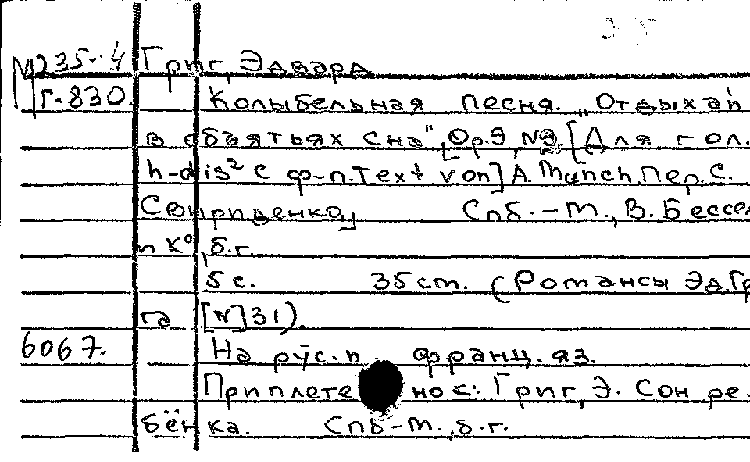 М235-4 Григ, Эдвард
Г-830. Колыбельная песня. „Отдыхай
в объятьях сна", Op.9, №2 [Для гол.
h-dis² с ф-п. Text von] A. Munch, Пер. С.
Свириденко, Спб.-М., В. Бессел
и К°, б.г.
5 с. 35 cm. (Романсы Эд. Гр
га [N] 31).
6067. На рус. и франц. яз.
Приплете но с: Григ, Э. Сон ре-
бёнка. Спб-М., б.г.